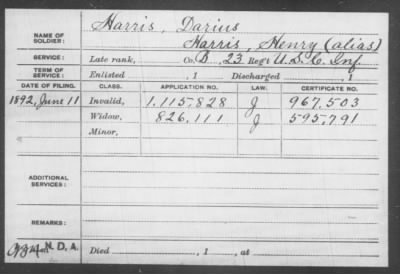 Harris, Darius
NAME OF SOLDIER: Harris, Henry (alias)
SERVICE: Late rank, Co. B, 23 Reg't U.S.C. Inf.
TERM OF SERVICE: Enlisted , 1 Discharged , 1
DATE OF FILING. CLASS. APPLICATION NO. LAW. CERTIFICATE NO.
1892, June 11 Invalid, 1.115.828 J 967.503
Widow, 826.111 J 595.791
Minor,
ADDITIONAL SERVICES:
REMARKS:
N. D. A. Died , 1 , at